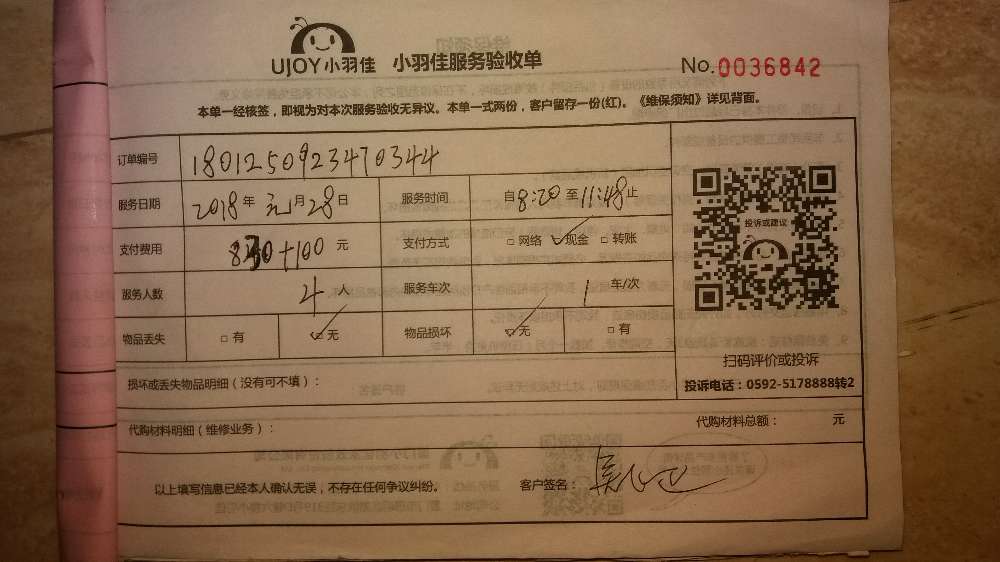 UJOY小羽佳 小羽佳服务验收单 No.0036842
本单一经核签，即视为对本次服务验收无异议。本单一式两份，客户留存一份(红)。《维保须知》详见背面。
订单编号 1801250923470344
服务日期 2018年元月28日 服务时间 自8:20至11:48止
支付费用 830+100元 支付方式 □网络 ☑现金 □转账
服务人数 4人 服务车次 1车/次
物品丢失 □有 ☑无 物品损坏 ☑无 □有
投诉或建议
扫码评价或投诉
投诉电话：0592-5178888转2
损坏或丢失物品明细（没有可不填）：
代购材料明细（维修业务）： 代购材料总额： 元
以上填写信息已经本人确认无误，不存在任何争议纠纷。 客户签名：